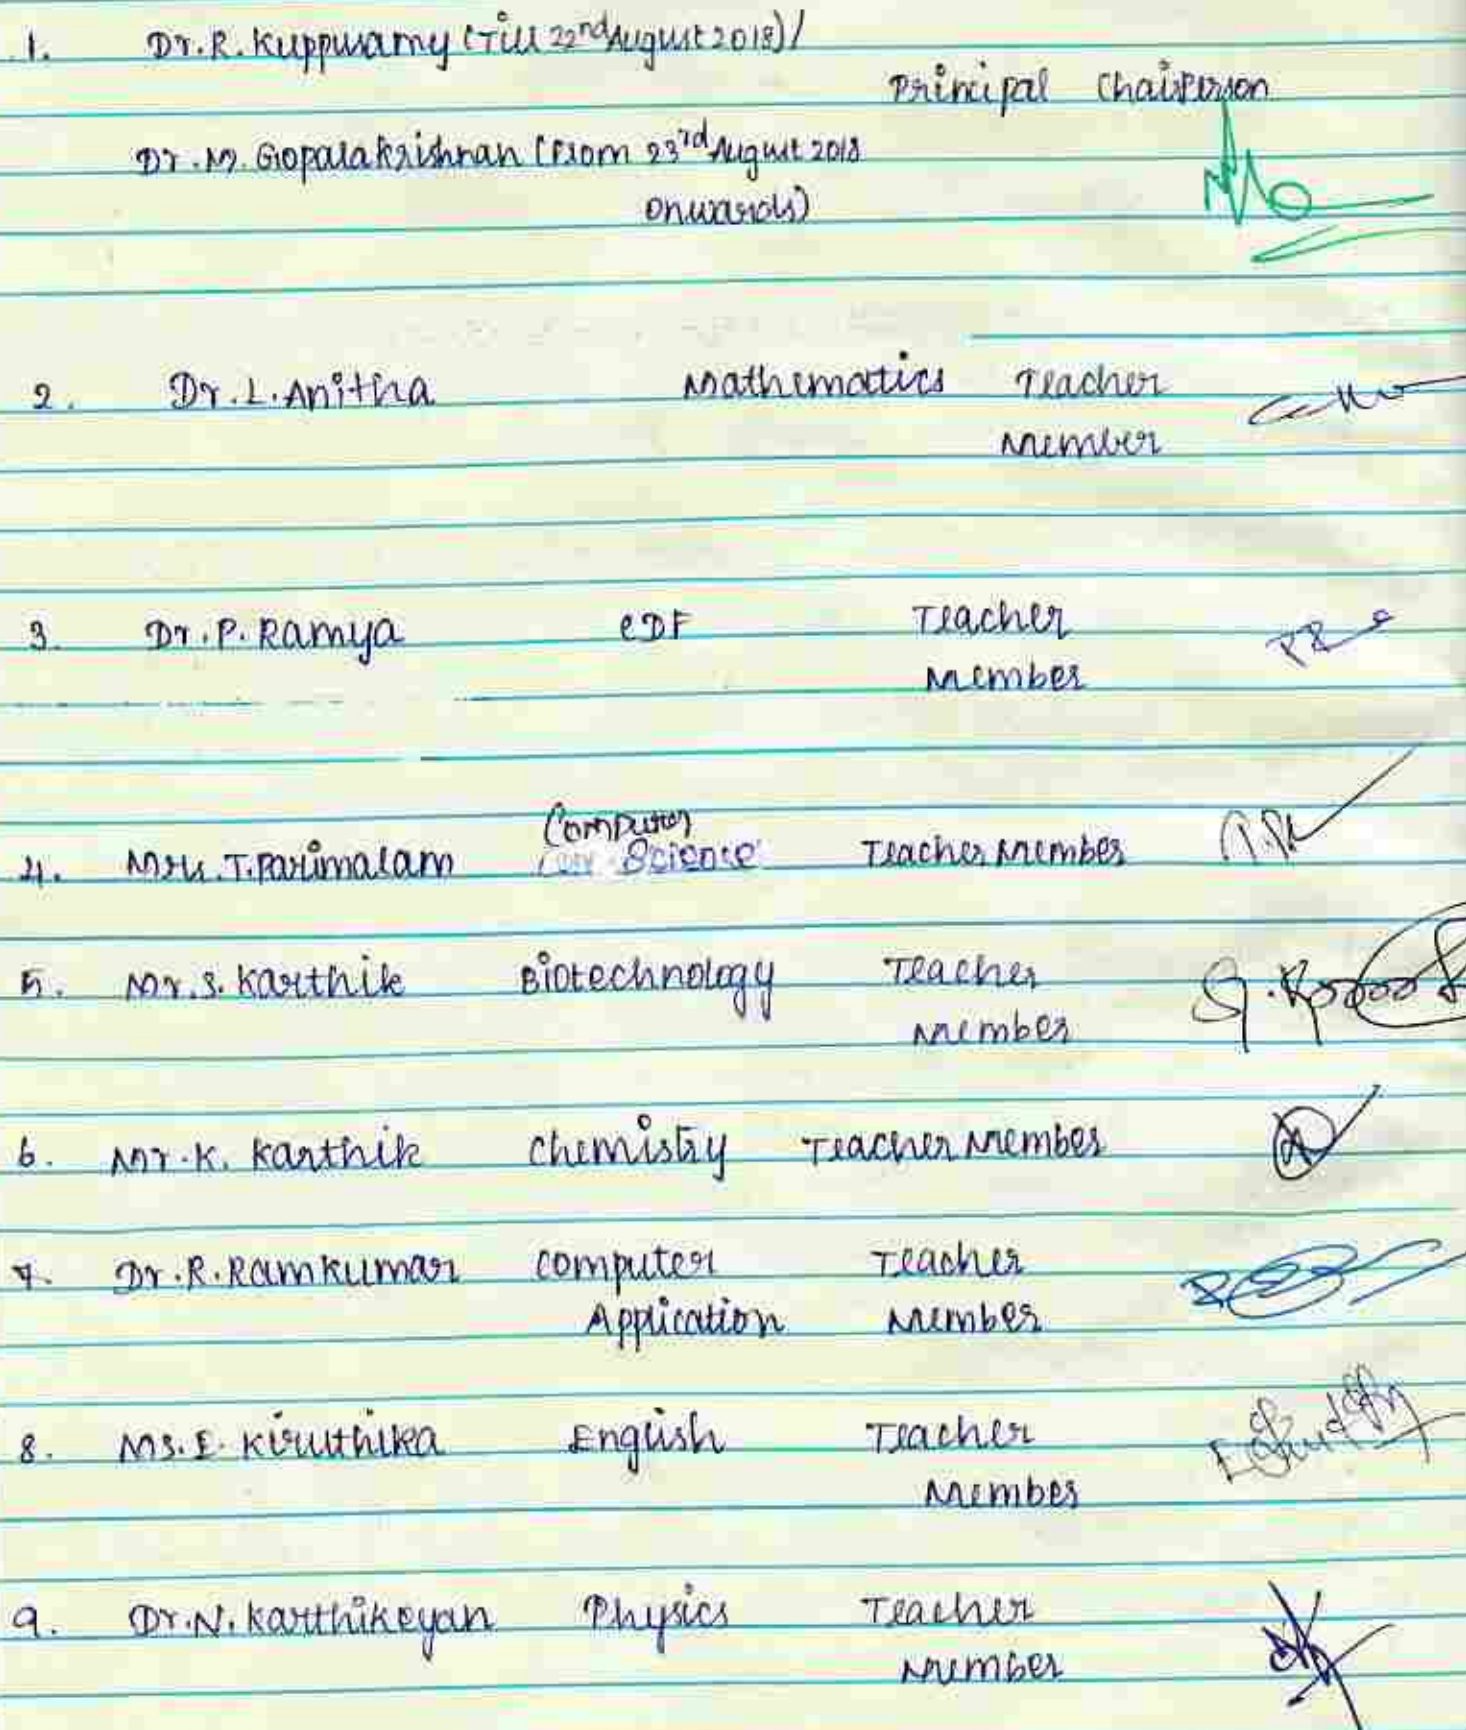 1. Dr. R. Kuppusamy (Till 22nd August 2018)/
Principal Chairperson
Dr. M. Gopalakrishnan (From 23rd August 2018
onwards)
2. Dr. L. Anitha Mathematics Teacher
Member
3. Dr. P. Ramya CDF Teacher
Member
Computer
4. Mrs. T. Parimalam Science Teacher Member
5. Mr. S. Karthik Biotechnology Teacher
Member
6. Mr. K. Karthik Chemistry Teacher Member
7. Dr. R. Ramkumar Computer Teacher
Application Member
8. Ms. E. Kiruthika English Teacher
Member
9. Dr. N. Karthikeyan Physics Teacher
Member